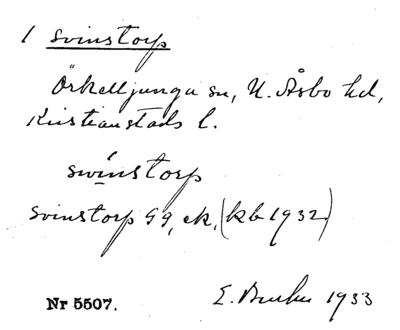 1 Svinstorp
Örkelljunga sn, N. Åsbo hd,
Kristianstads l.
swinstorp
Svinstorp gg, ek, (kb 1932)
E. 1933
Nr 5507.